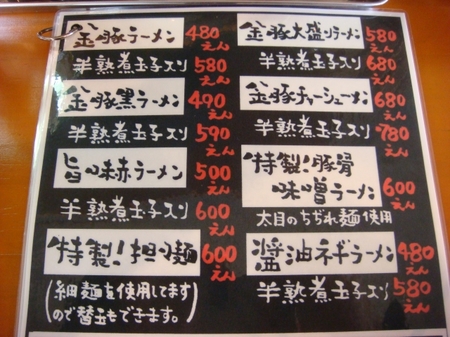 金豚ラーメン 480えん
半熟煮玉子入り 580えん
金豚黒ラーメン 490えん
半熟煮玉子入り 590えん
旨味赤ラーメン 500えん
半熟煮玉子入り 600えん
特製!担々麺 600えん
(細麺を使用してます
ので替玉もできます。)
金豚大盛りラーメン 580えん
半熟煮玉子入り 680えん
金豚チャーシューメン 680えん
半熟煮玉子入り 780えん
特製!豚骨
味噌ラーメン 600えん
太目のちぢれ麺使用
醤油ネギラーメン 480えん
半熟煮玉子入り 580えん